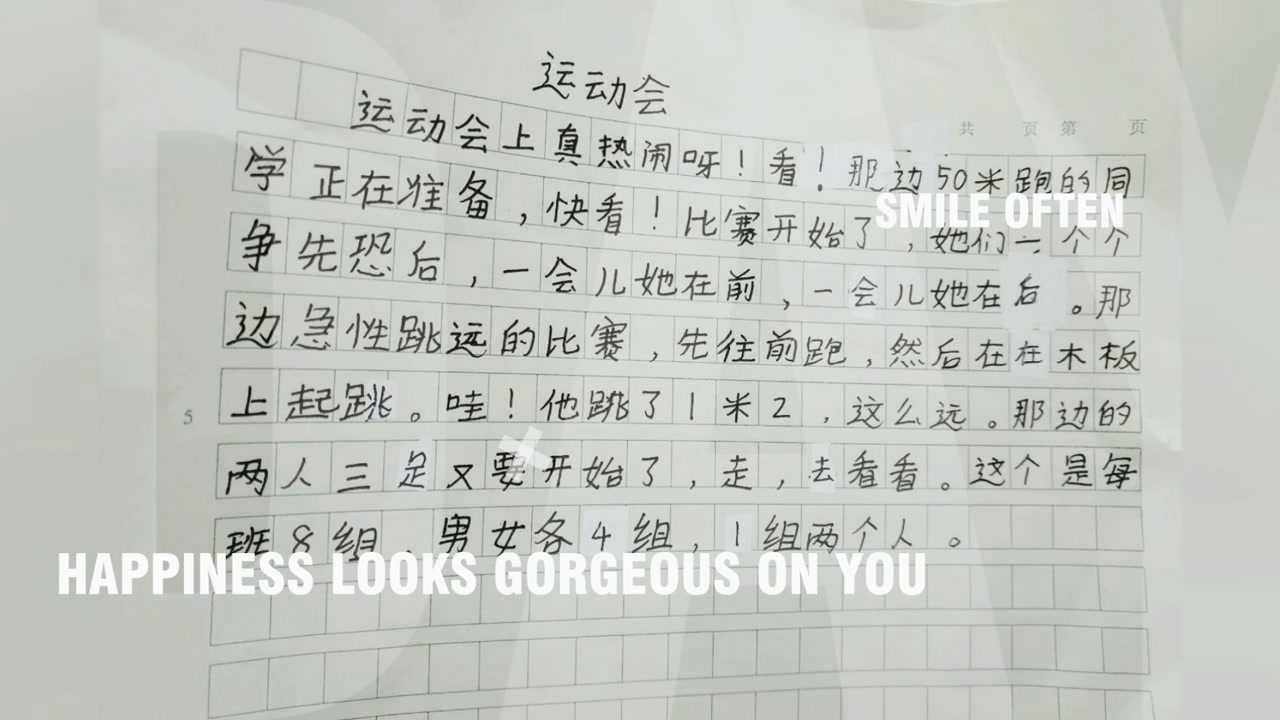 运动会
共 页 第 页
运动会上真热闹呀！看！那边50米跑的同
学正在准备，快看！比赛开始了，她们一个个
SMILE OFTEN
争先恐后，一会儿她在前，一会儿她在后。那
边急性跳远的比赛，先往前跑，然后在在木板
5
上起跳。哇！他跳了1米2，这么远。那边的
两人三足又要开始了，走，去看看。这个是每
班8组，男女各4组，1组两个人。
HAPPINESS LOOKS GORGEOUS ON YOU